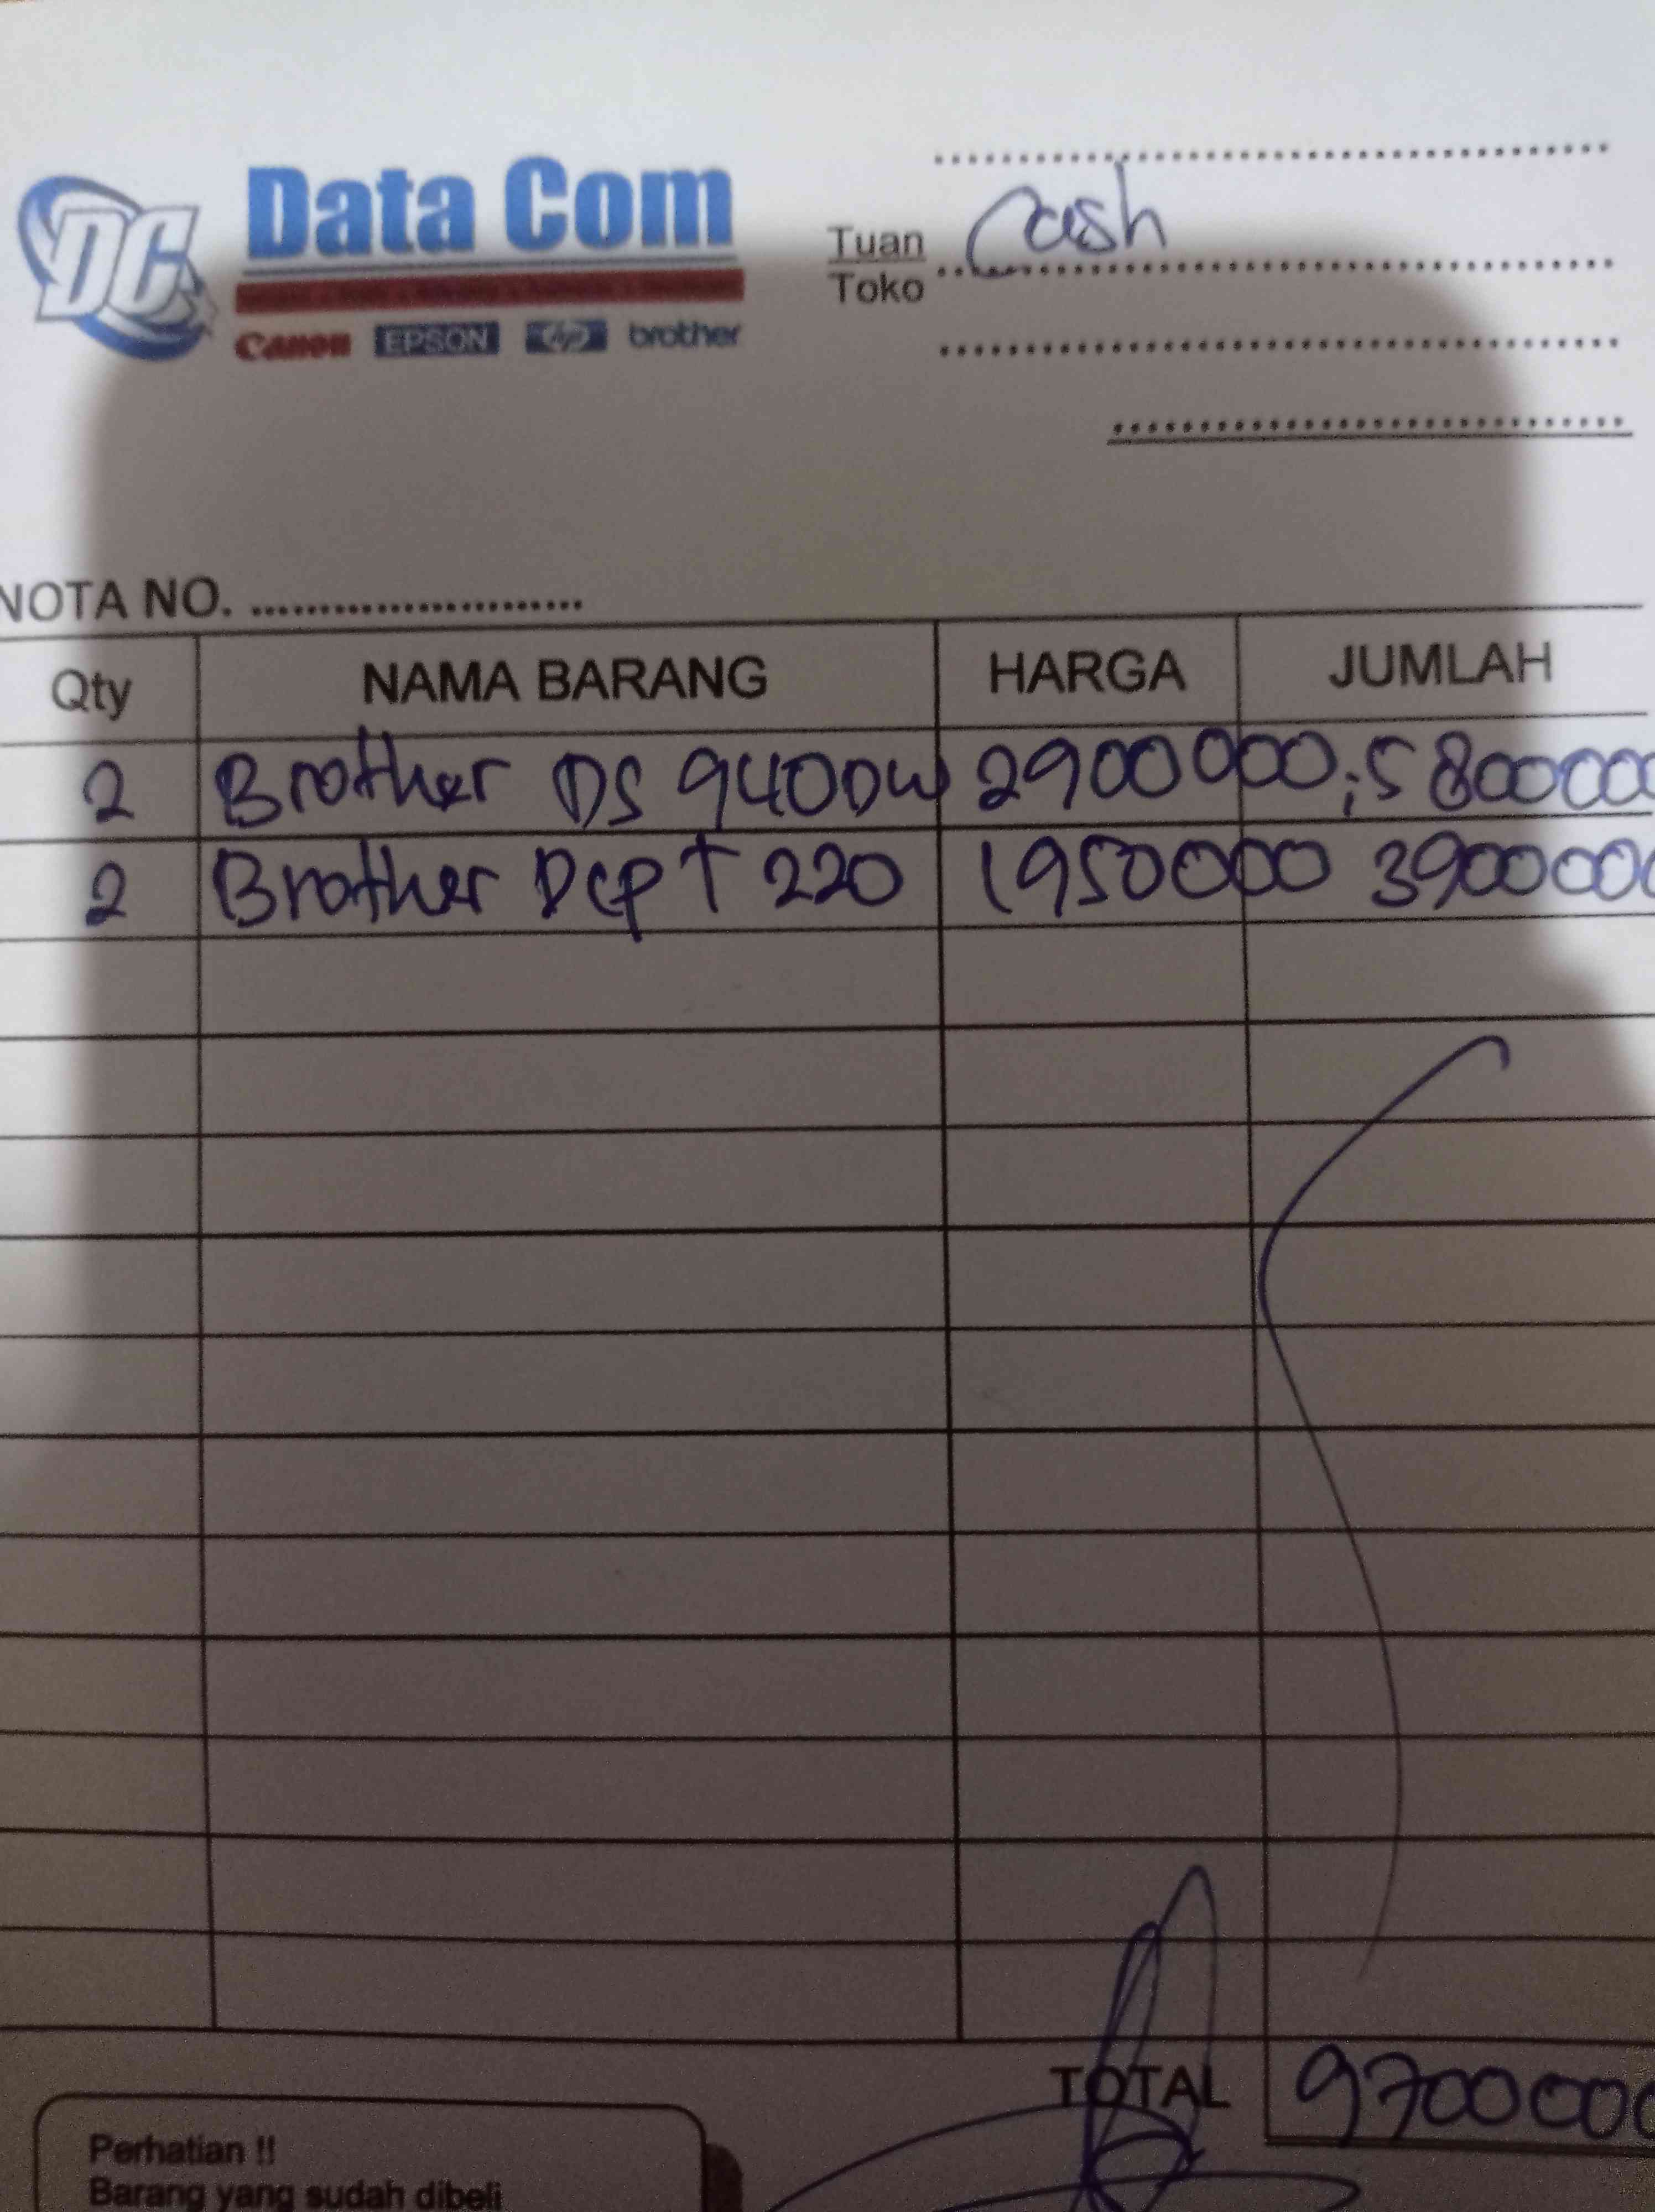 DC
Data Com
Canon EPSON hp brother
Tuan Cash
Toko
NOTA NO.
Qty NAMA BARANG HARGA JUMLAH
2 Brother DS 940DW 2900000,; 5800000
2 Brother Dcp T 220 1950000 3900000
TOTAL 9700000
Perhatian !!
Barang yang sudah dibeli